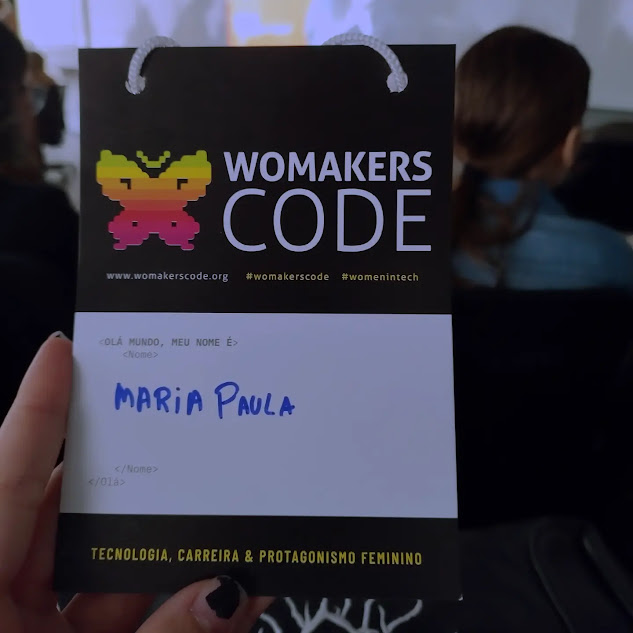 WOMAKERS
CODE
www.womakerscode.org #womakerscode #womenintech
<OLÁ MUNDO, MEU NOME É>
<Nome>
MARIA PAULA
</Nome>
</Olá>
TECNOLOGIA, CARREIRA & PROTAGONISMO FEMININO